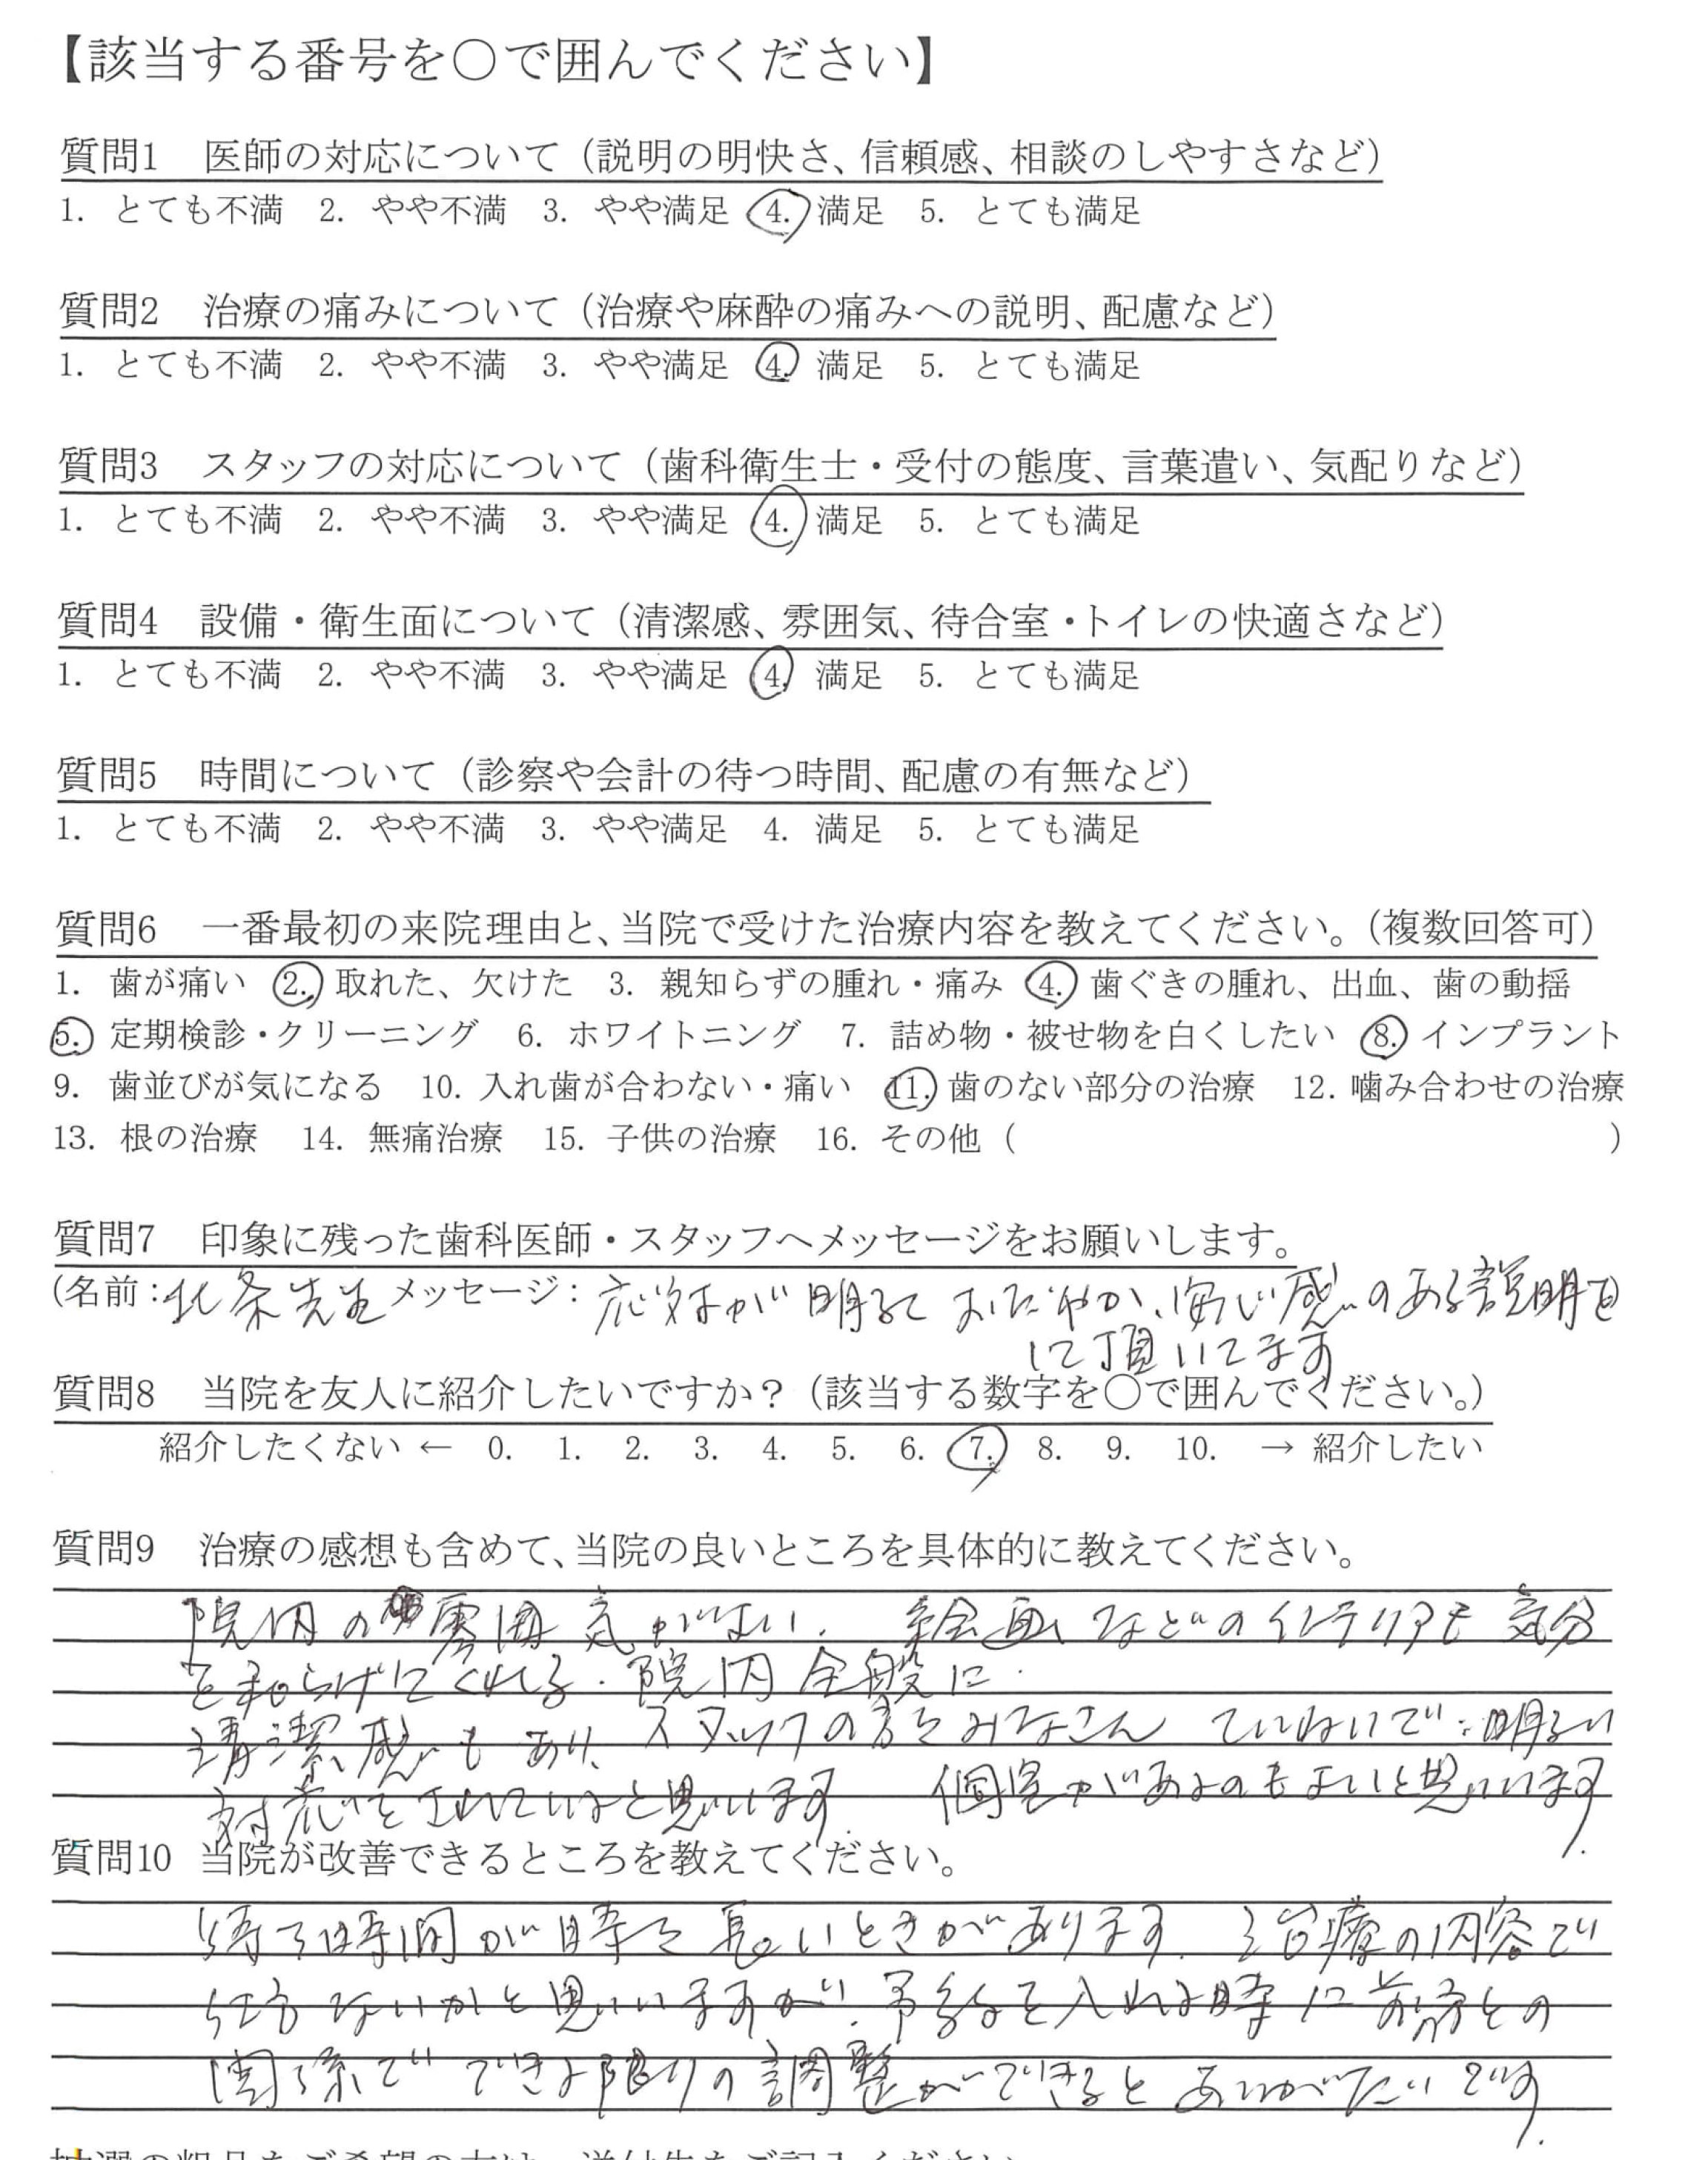 【該当する番号を○で囲んでください】
質問1　医師の対応について（説明の明快さ、信頼感、相談のしやすさなど）
1. とても不満　2. やや不満　3. やや満足　4. 満足　5. とても満足
質問2　治療の痛みについて（治療や麻酔の痛みへの説明、配慮など）
1. とても不満　2. やや不満　3. やや満足　4. 満足　5. とても満足
質問3　スタッフの対応について（歯科衛生士・受付の態度、言葉遣い、気配りなど）
1. とても不満　2. やや不満　3. やや満足　4. 満足　5. とても満足
質問4　設備・衛生面について（清潔感、雰囲気、待合室・トイレの快適さなど）
1. とても不満　2. やや不満　3. やや満足　4. 満足　5. とても満足
質問5　時間について（診察や会計の待つ時間、配慮の有無など）
1. とても不満　2. やや不満　3. やや満足　4. 満足　5. とても満足
質問6　一番最初の来院理由と、当院で受けた治療内容を教えてください。（複数回答可）
1. 歯が痛い　2. 取れた、欠けた　3. 親知らずの腫れ・痛み　4. 歯ぐきの腫れ、出血、歯の動揺
5. 定期検診・クリーニング　6. ホワイトニング　7. 詰め物・被せ物を白くしたい　8. インプラント
9. 歯並びが気になる　10. 入れ歯が合わない・痛い　11. 歯のない部分の治療　12. 噛み合わせの治療
13. 根の治療　14. 無痛治療　15. 子供の治療　16. その他（　　　）
質問7　印象に残った歯科医師・スタッフへメッセージをお願いします。
(名前：北条先生 メッセージ：応対が明るく おだやか、安心感のある説明を
して頂いてます
質問8　当院を友人に紹介したいですか？（該当する数字を○で囲んでください。）
紹介したくない ← 0. 1. 2. 3. 4. 5. 6. 7. 8. 9. 10. → 紹介したい
質問9　治療の感想も含めて、当院の良いところを具体的に教えてください。
院内の雰囲気がよい. 絵画などのインテリアも気分
を和らげてくれる. 院内全般に
清潔感もあり、スタッフの方も みなさん ていねいで 明るい
対応をされていると思います. 個室があるのもよいと思います.
質問10　当院が改善できるところを教えてください。
待つ時間が時々長いときがあります. 治療の内容で
仕方ないかと思いますが. 予約を入れる時に前の方との
関係で できる限りの調整ができると ありがたいです.